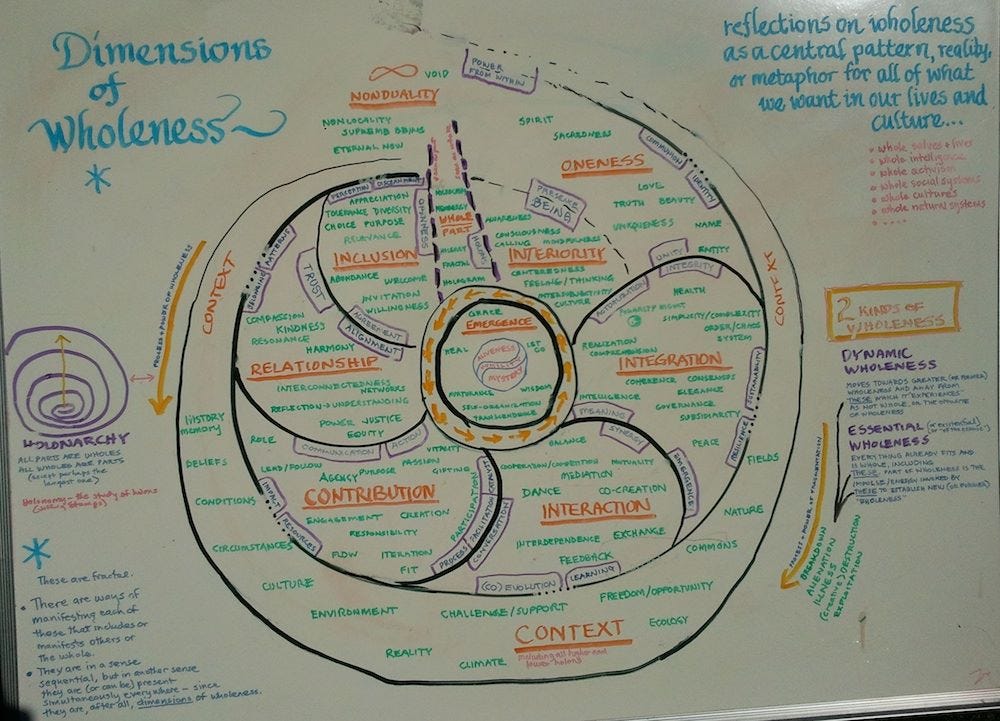 Dimensions
of
Wholeness
reflections on wholeness
as a central pattern, reality,
or metaphor for all of what
we want in our lives and
culture...
• whole selves + lives
• whole intelligence
• whole activism
• whole social systems
• whole cultures
• whole natural systems
VOID
NONDUALITY
NONLOCALITY
SUPREME BEING
ETERNAL NOW
POWER
FROM WITHIN
SPIRIT
SACREDNESS
ONENESS
COMMUNION
IDENTITY
LOVE
TRUTH BEAUTY
UNIQUENESS
NAME
ENTITY
PRESENCE
BEING
PERCEPTION
DISCERNMENT
APPRECIATION
TOLERANCE DIVERSITY
CHOICE PURPOSE
RELEVANCE
INCLUSION
ABUNDANCE WELCOME
INVITATION
WILLINGNESS
OPENNESS
WHOLE
PART
FRACTAL
HOLOGRAM
HOLONS
AWARENESS
CONSCIOUSNESS
CALLING MINDFULNESS
INTERIORITY
CENTEREDNESS
FEELING/THINKING
INTERSUBJECTIVITY
CULTURE
UNITY
INTEGRITY
HEALTH
POLARITY
SIMPLICITY/COMPLEXITY
ORDER/CHAOS
SYSTEM
REALIZATION
COMPREHENSION
INTEGRATION
COHERENCE CONSENSUS
ELEGANCE
INTELLIGENCE
GOVERNANCE
SUBSIDIARITY
MEANING
SUSTAINABILITY
RESILIENCE
CONTEXT
CONTEXT
PROCESS + POWER OF WHOLENESS
PATTERNS
BELONGING
TRUST
COMPASSION
KINDNESS
RESONANCE
HARMONY
AGREEMENT
ALIGNMENT
RELATIONSHIP
INTERCONNECTEDNESS
NETWORKS
REFLECTION → UNDERSTANDING
POWER JUSTICE
EQUITY
GRACE
EMERGENCE
HEAL
LET
GO
ALIVENESS
MYSTERY
NURTURANCE
WISDOM
SELF-ORGANIZATION
TRANSCENDENCE
HISTORY
MEMORY
BELIEFS
CONDITIONS
CIRCUMSTANCES
ROLE
COMMUNICATION
ACTION
VITALITY
LEAD/FOLLOW
PASSION
AGENCY
PURPOSE
GIFTING
CONTRIBUTION
IMPACT
RESOURCES
ENGAGEMENT
CREATION
RESPONSIBILITY
FLOW
ITERATION
FIT
PARTICIPATION
PROCESS
FACILITATION
CONVERSATION
BALANCE
SYNERGY
PEACE
COOPERATION/COMPETITION
MUTUALITY
MEDIATION
DANCE
CO-CREATION
INTERACTION
INTERDEPENDENCE
EXCHANGE
FEEDBACK
FIELDS
NATURE
COMMONS
(CO) EVOLUTION
LEARNING
CULTURE
ENVIRONMENT
CHALLENGE/SUPPORT
FREEDOM/OPPORTUNITY
ECOLOGY
CONTEXT
including all higher and
lower holons
REALITY
CLIMATE
HOLONARCHY
ALL PARTS ARE WHOLES
ALL WHOLES ARE PARTS
(except perhaps the
largest one)
Holonomy - the study of holons
These are fractal.
• There are ways of
manifesting each of
these that includes or
manifests others or
the whole.
• They are in a sense
sequential, but in another sense
they are (or can be) present
simultaneously everywhere - since
they are, after all, dimensions of wholeness.
2 KINDS OF
WHOLENESS
DYNAMIC
WHOLENESS
MOVES TOWARDS GREATER (OR FULLER)
WHOLENESS AND AWAY FROM
THESE WHICH IT "EXPERIENCES"
AS NOT WHOLE, OR THE OPPOSITE
OF WHOLENESS
ESSENTIAL (or existential)
WHOLENESS
EVERYTHING ALREADY FITS AND
IS WHOLE, INCLUDING
THESE. PART OF WHOLENESS IS THE
IMPULSE/ENERGY INVOKED BY
THESE TO ESTABLISH NEW (OR FULLER)
"WHOLENESS"
PROCESS + POWER OF FRAGMENTATION
BREAKDOWN
ALIENATION
ILLNESS
(creative) DESTRUCTION
EXPLOITATION